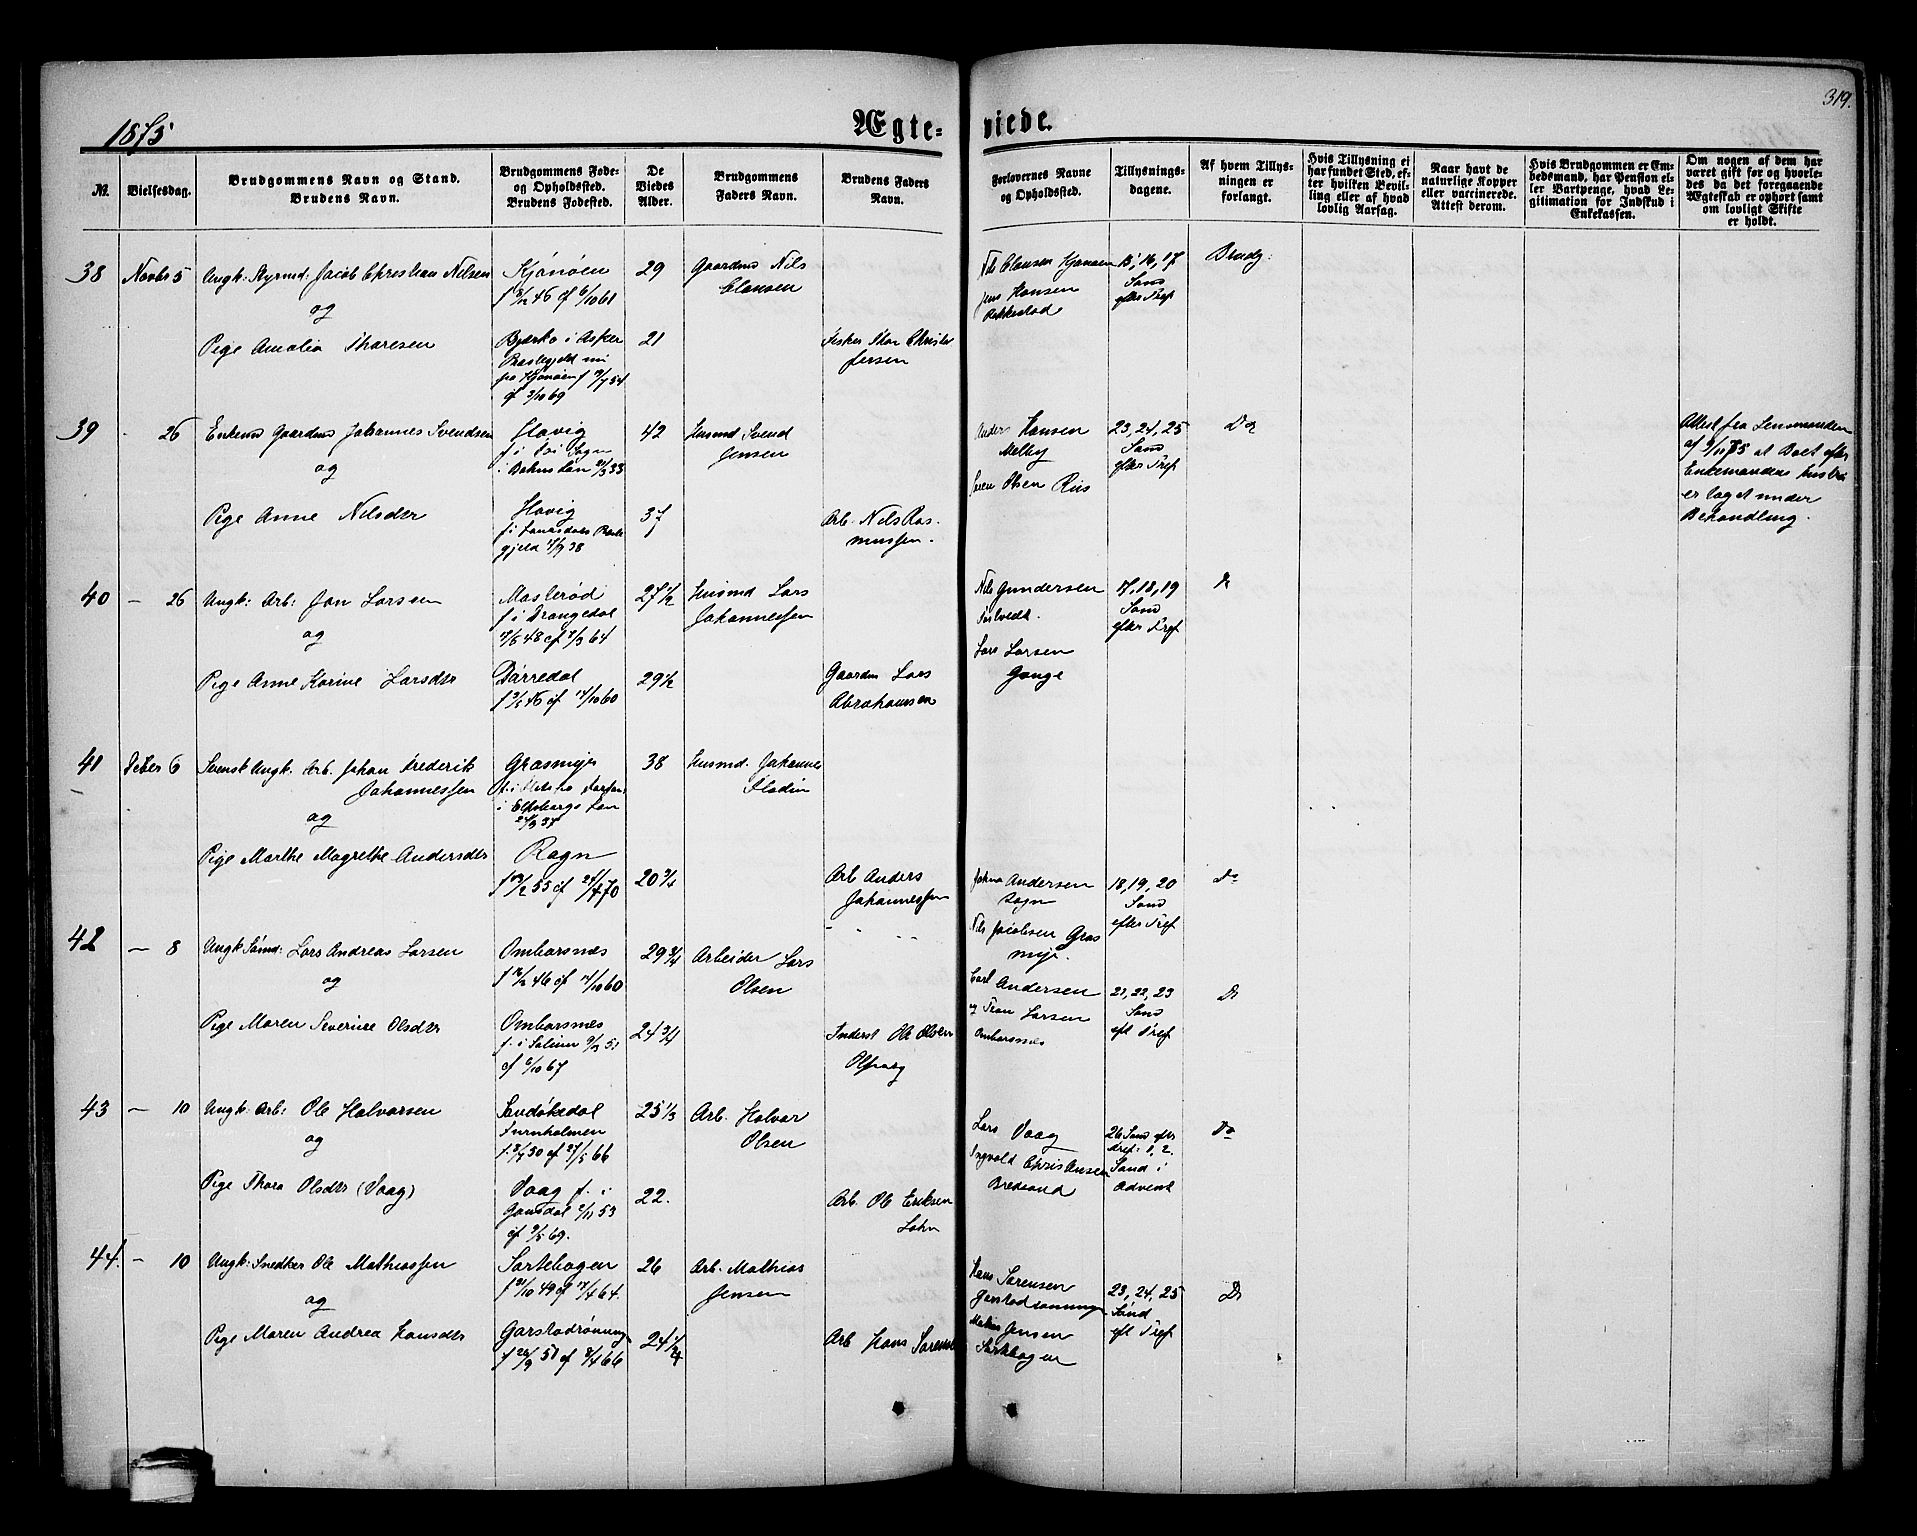 319.
1875
Ægte-
viede.
№.
Vielsesdag.
Brudgommens Navn og Stand.
Brudens Navn.
Brudgommens Føde-
og Opholdssted.
Brudens Fødested.
De
Viedes
Alder.
Brudgommens
Faders Navn.
Brudens Faders
Navn.
Forlovernes Navne
og Opholdssted.
Tillysnings-
dagene.
Af hvem Tillys-
ningen er
forlangt.
Hvis Tillysning ei
har fundet Sted, ef-
ter hvilken Bevil-
ling eller af hvad
lovlig Aarsag.
Naar havt de
naturlige Kopper
eller vaccinerede.
Attest derom.
Hvis Brudgommen er Em-
bedsmand, har Pension el-
ler Vartpenge, hvad Le-
gitimation for Indskud i
Enkekassen.
Om nogen af dem har
været gift før og hvorle-
des da det foregaaende
Ægteskab er ophørt samt
om lovligt Skifte
er holdt.
38
Novbr 5
Ungk: Styrmd: Jacob Christian Nilsen
og
Pige Amalia Thoresen
Kjønøen
Bjerkø i Asker
29
21
Gaardmd Nils
Clausen
Fisker Thor Christo
fersen
Nils Clausen Kjønøen
Jens Hansen
Rakkestad
15, 16, 17
Sønd
efter Tref
Brudg:
39
- 26
Enkemd Gaardmd Johannes Svendsen
og
Pige Anne Nilsdtr
Havig
Havig
42
37
Husmd Svend
Jensen
Arb. Nils Ras-
mussen.
Anders Hansen
Melby
Søren Olsen Riis
23, 24, 25
Sønd
efter Tref
Do
Attest fra Lensmanden
af 9/11 75 at Boet efter
Enkemandens Hustru
er taget under
Behandling.
40
- 26
Ungk: Arb: Jan Larsen
og
Pige Anne Karine Larsdtr
Maslerød
f. i Drangedal
7/5 48 cf 7/3 64
Dørredal
27 1/2
29 1/2
Husmd Lars
Johannessen
Gaardm Lars
Abrahamsen
Nils Gundersen
Lars Larsen
Gonge
17, 18, 19
Sønd
efter Tref
41
Decber 6
Svensk Ungk. Arb. Johan Frederik
Johannessen
og
Pige Marthe Magrethe Andersdtr
Grasmyr
i Elfsborgs Län
Ragn
38
20 3/4
Husmd. Johannes
Flodin
Arb Anders
Johannessen
Johan Andersen
Nils Jacobsen Gras
myr.
18, 19, 20
Sønd
efter Tref
Do
42
- 8
Ungk Sømd: Lars Andreas Larsen
og
Pige Maren Severine Olsdtr
Ombarsnæs
Ombarsnæs
29 3/4
24 3/4
Arbeider Lars
Olsen
Inderst Ole Olsen
Carl Andersen
og Larsen
Ombarsnæs
21, 22, 23
Sønd
eft Tref
Do
43
- 10
Ungk: Arb: Ole Halvorsen
og
Pige Thora Olsdtr (Vaag)
Sandøkedal
Furuholmen
Vaag f. i
25 1/3
22.
Arb. Halvor
Olsen
Arb. Ole Eriksen
Lars Vaag
Ingvald Christiansen
Bredsand
26 Sønd efter
Tref: 1, 2.
Sønd i
Advent
Do
44.
- 10
Ungk: Snedker Ole Mathiassen
og
Pige Maren Andrea Hansdtr
Sartebogen
Garstadrønning
26
24 1/4
Arb. Mathias
Jensen
Arb Hans Sørensen
Hans Sørensen
Garstadrønningen
Mathias Jensen
Sartebogen
23, 24, 25
Sønd
eft Tref
Do